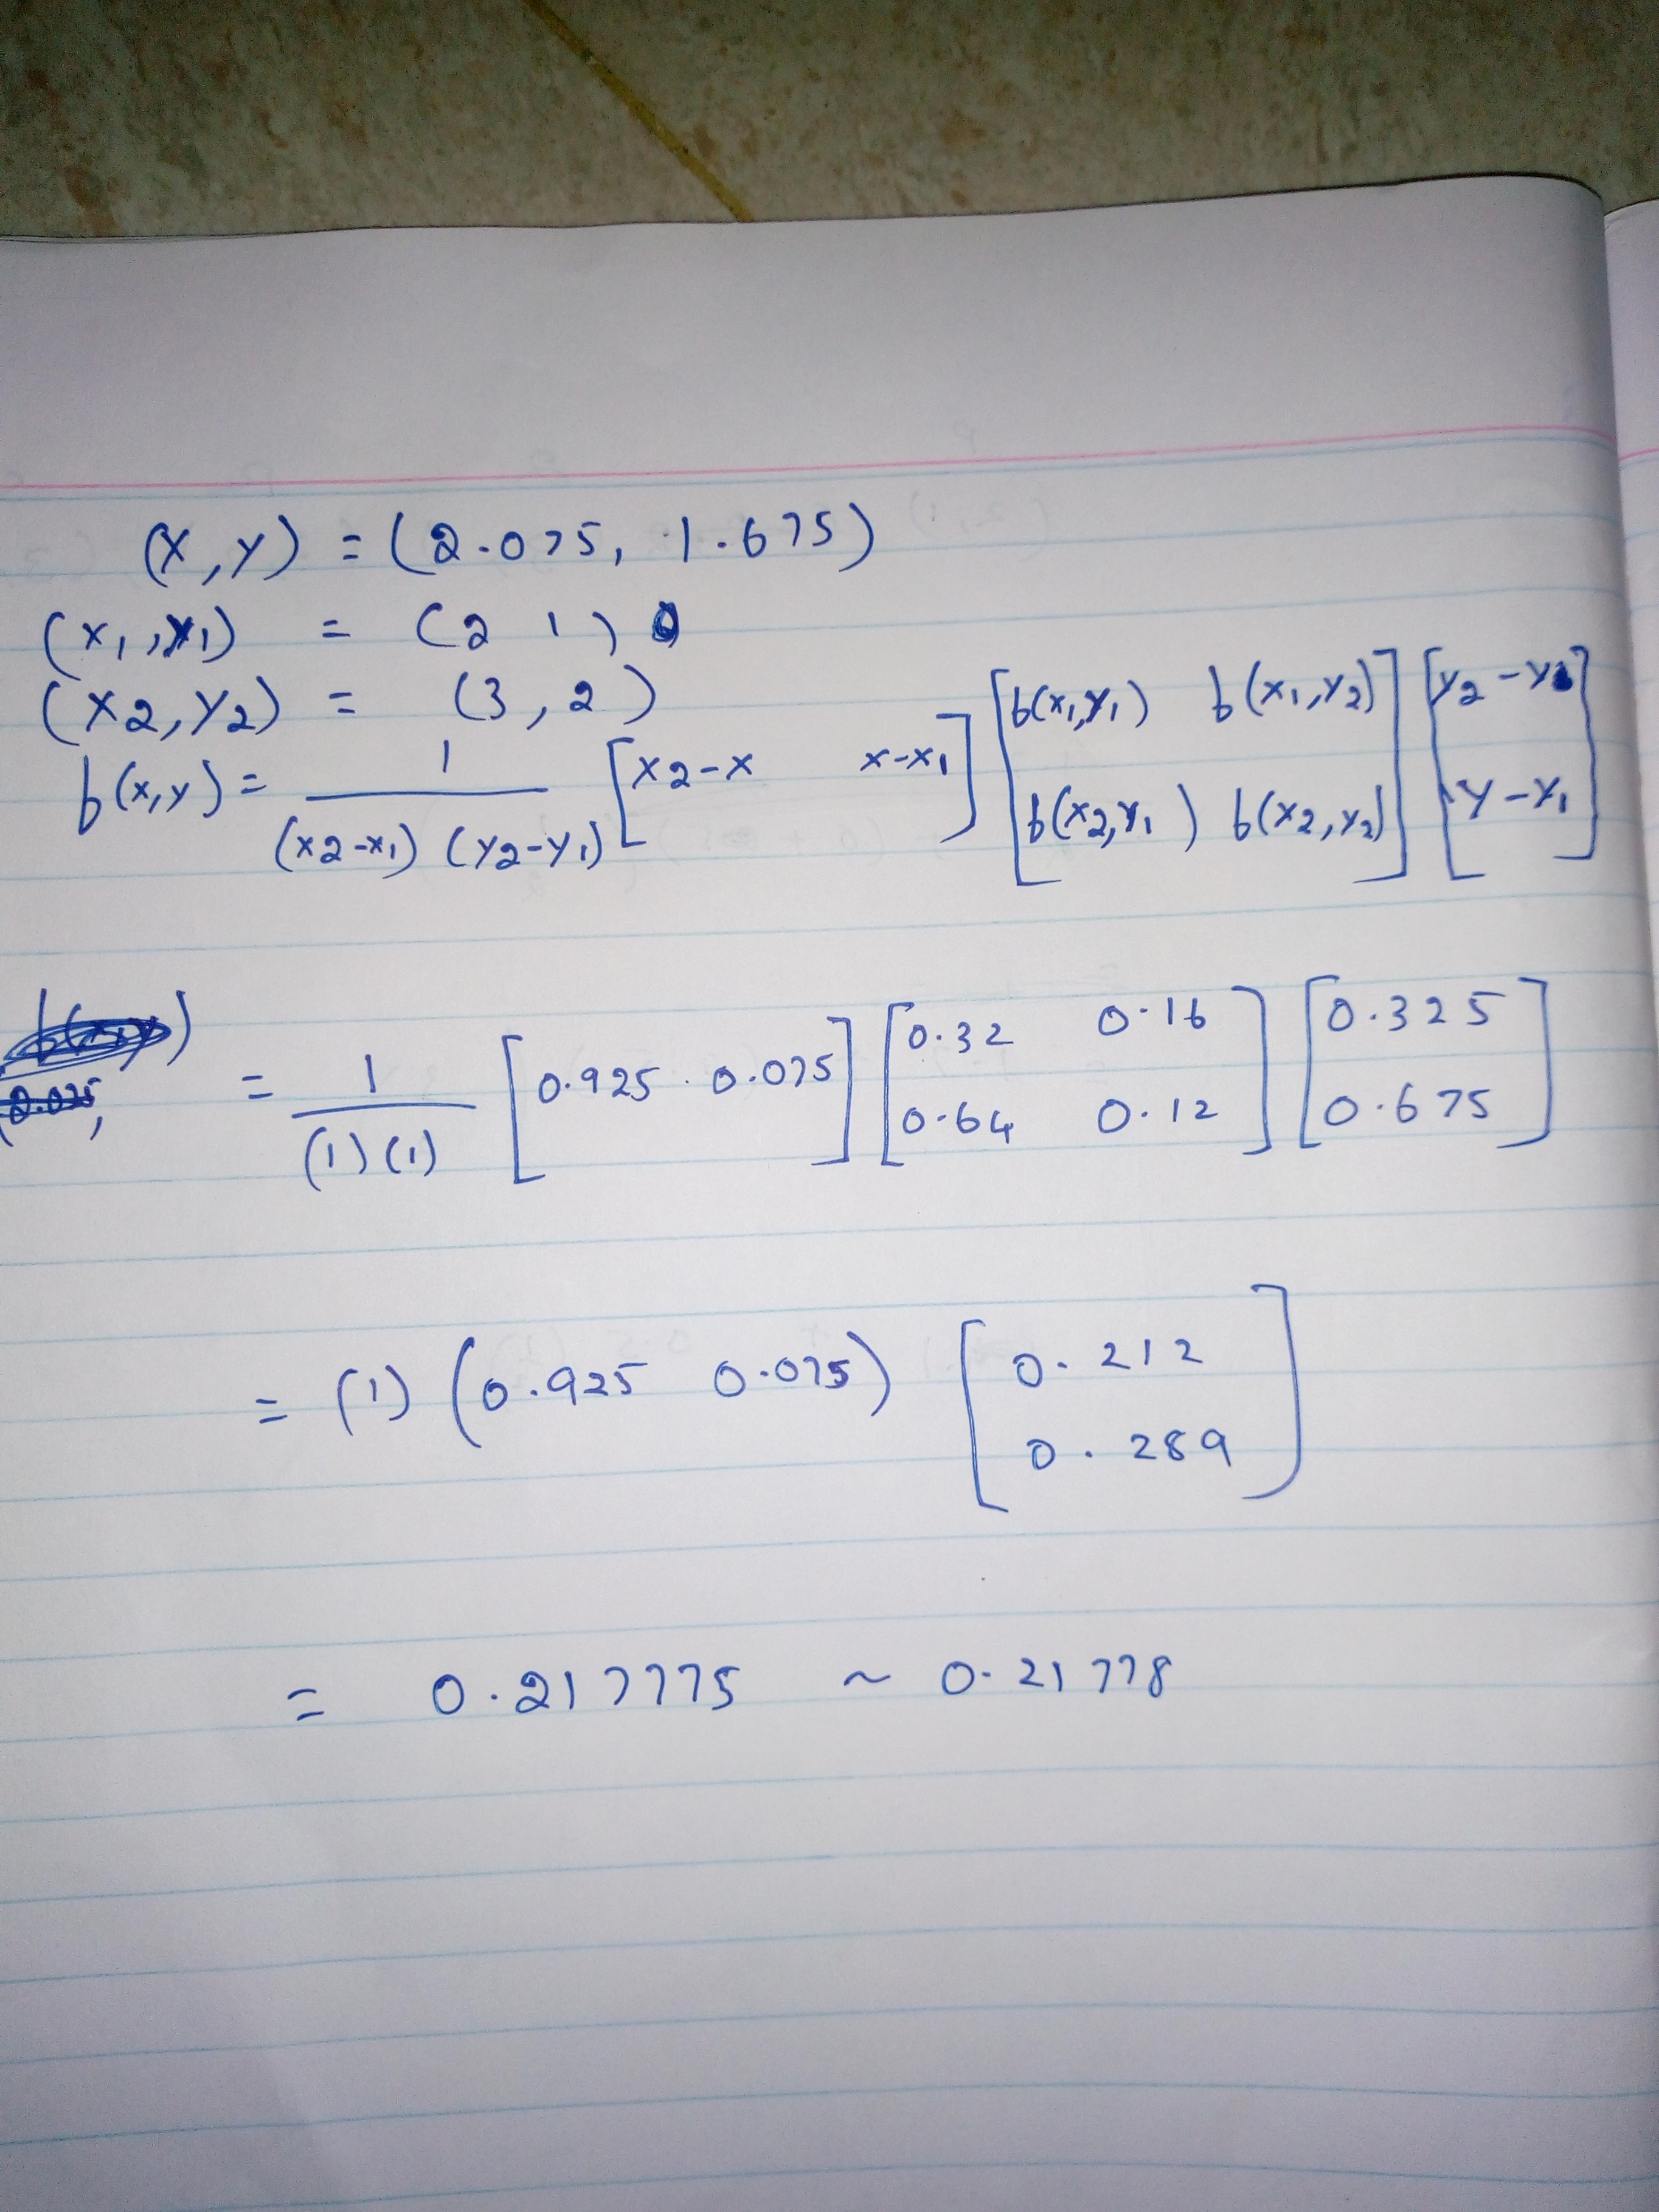 (x,y) = (2.075, 1.675)
(x1,y1) = (2 1)
(x2,y2) = (3,2)
f(x,y) = 1/((x2-x1)(y2-y1)) [x2-x x-x1] [f(x1,y1) f(x1,y2) f(x2,y1) f(x2,y2)] [y2-y y-y1]
= 1/((1)(1)) [0.925 0.075] [0.32 0.16 0.64 0.12] [0.325 0.675]
= (1) (0.925 0.075) [0.212 0.289]
= 0.217775 ~ 0.21778